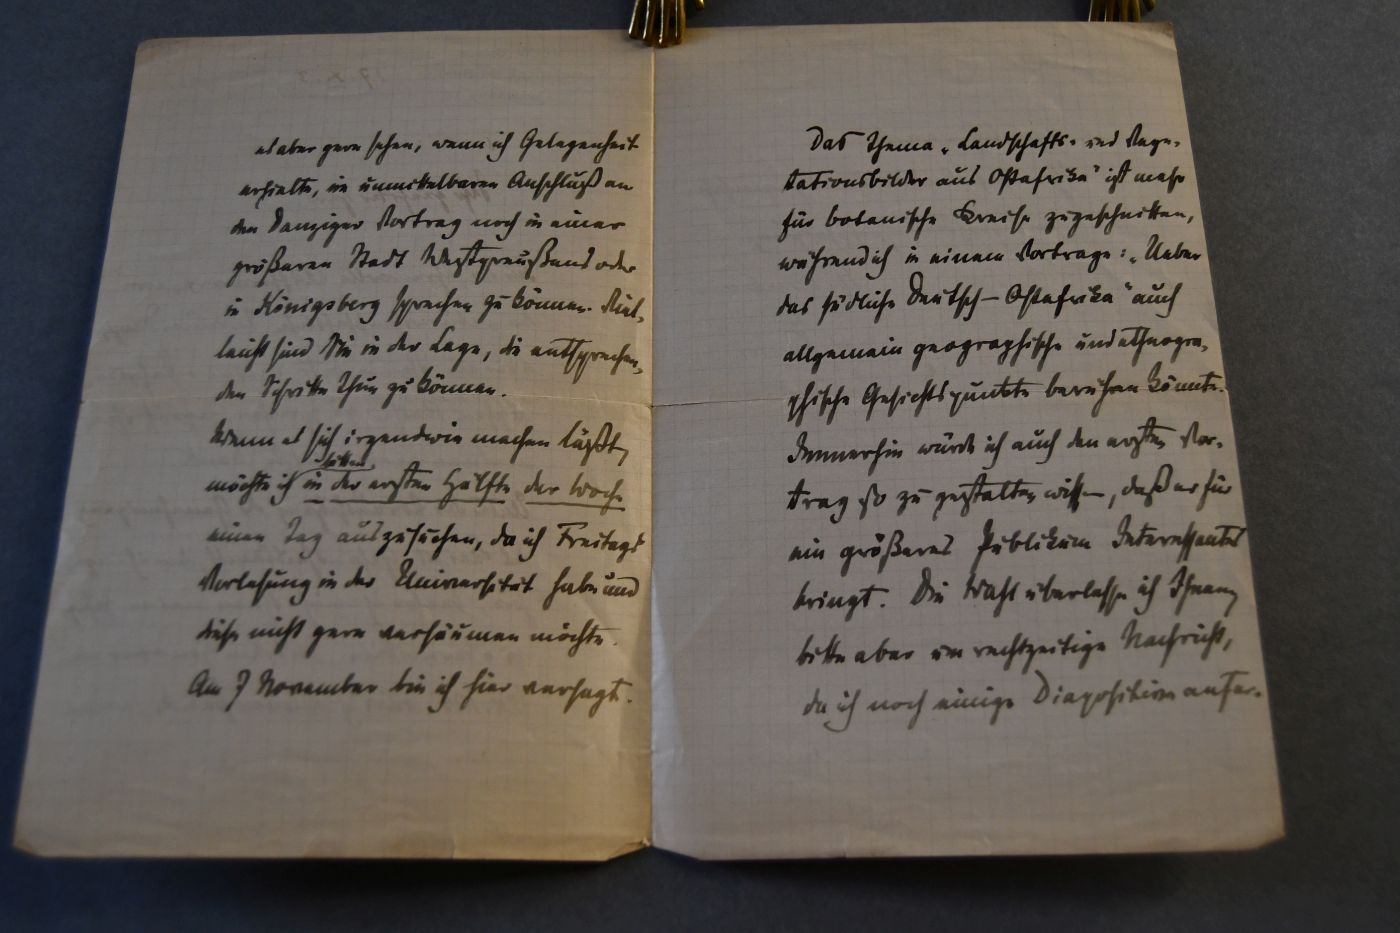 es aber gern sehen, wenn ich Gelegenheit
erhielte, im unmittelbaren Anschluß an
den Danziger Vortrag noch in einer
größeren Stadt Westpreußens oder
in Königsberg sprechen zu können. Viel-
leicht sind Sie in der Lage, die entsprechen-
den Schritte thun zu können.
Wenn es sich irgendwie machen läßt,
bitten
möchte ich in der ersten Hälfte der Woche
einen Tag auszusuchen, da ich Freitags
Vorlesung in der Universität habe und
diese nicht gern versäumen möchte.
Am 7 November bin ich hier versagt.
Das Thema „Landschafts- und Vege-
tationsbilder aus Ostafrika“ ist mehr
für botanische Kreise zugeschnitten,
während ich in einem Vortrage: „Ueber
das südliche Deutsch-Ostafrika“ auch
allgemein geographische und ethnogra-
phische Gesichtspunkte berühren könnte.
Immerhin würde ich auch den ersten Vor-
trag so zu gestalten wissen, daß er für
ein größeres Publikum Interessantes
bringt. Die Wahl überlasse ich Ihnen,
bitte aber um rechtzeitige Nachricht,
da ich noch einige Diapositive anfer-